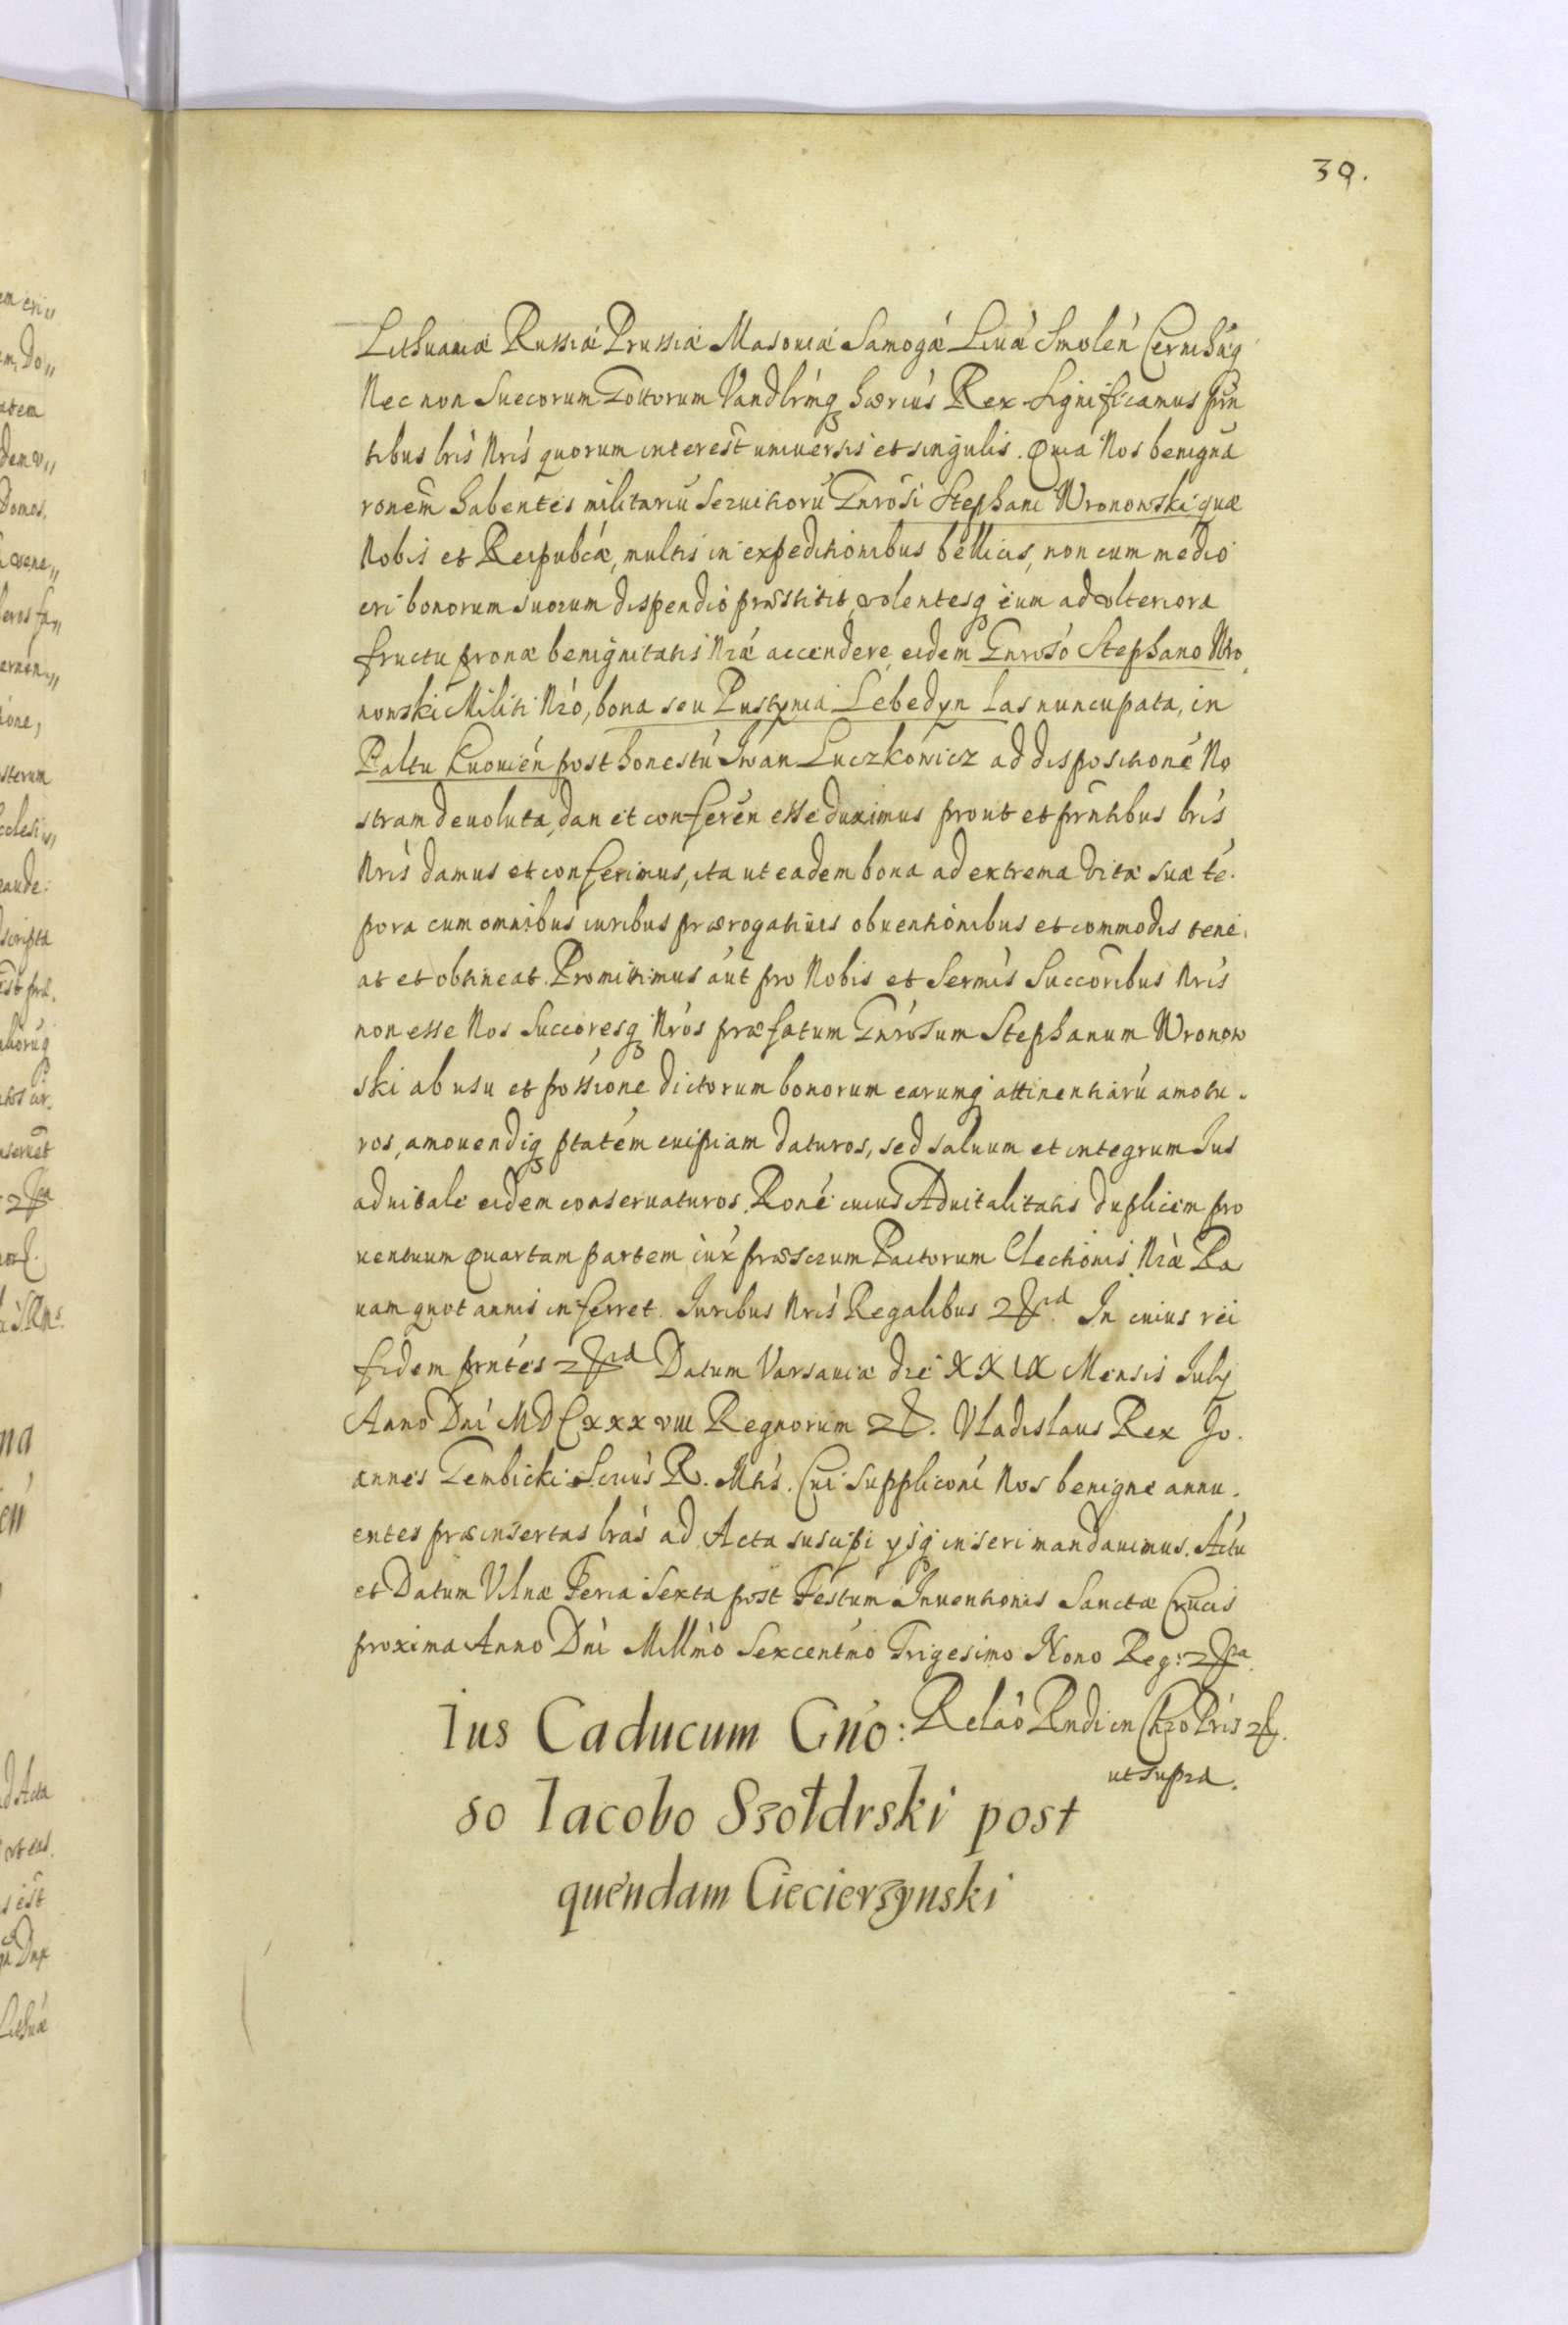 39.
Lithuaniæ Russiæ Prussiæ Masouiæ Samogæ Liuæ Smolén Cernihúq
Nec non Suecorum Gottorum Vandlrmq hærius Rex Significamus prn
tibus lris Nris quorum interest uniuersis et singulis. Quia Nos benigná
ronem habentes militariú seruitiorú Gnrosi Stephani Wronowski quæ
Nobis et Reipubcæ, multis in expeditionibus bellicis, non cum medio
cri bonorum suorum dispendio præstitit, volentesq eum ad vlteriora
fructu pronæ benignitatis Nræ accendere eidem Gnroso Stephano Wro
nowski Militi Nro, bona seu Pustynia Lebedyn Las nuncupata, in
Paltu Kuouién post honestú Iwan Luczkowicz ad dispositioné No
stram deuoluta, dan et conferén esse duximus prout et prntibus lris
Nris damus et conferimus, ita ut eadem bona ad extrema vitæ suæ té.
pora cum omnibus iuribus prærogatiuis obuentionibus et commodis tene
at et obtineat. Promittimus aút pro Nobis et Sermis Succoribus Nris
non esse Nos Succoresq Nros præfatum Gnrosum Stephanum Wronow
ski ab usu et possione dictorum bonorum earumq attinentiarú amotu.
ros, amouendiq ptatem cuipiam daturos, sed saluum et integrum Ius
aduitale eidem conseruaturos. Roné cuius Aduitalitatis duplicem pro
uentuum quartam partem iux præscrum Pactorum Electionis Nræ Ra
uam quot annis inferret. Iuribus Nris Regalibus In cuius rei
fidem prntes Datum Varsauiæ die XXIX Mensis July
Anno Dni MDCxxxviii Regnorum Vladislaus Rex Jo.
annes Gembicki Scrius R. Mtis. Cui supplicони Nos benigne annu.
entes præinsertas lras ad Acta suscipi ysq inseri mandauimus. Actú
et Datum Vilnæ Feria Sexta post Festum Inuentionis Sanctæ Crucis
proxima Anno Dni Millmo Sexcentmo Trigesimo Nono Reg:
Ius Caducum Gno: Relao Rndi in Chro Pris
ut supra.
so Iacobo Szołdrski post
quendam Ciecierzynski